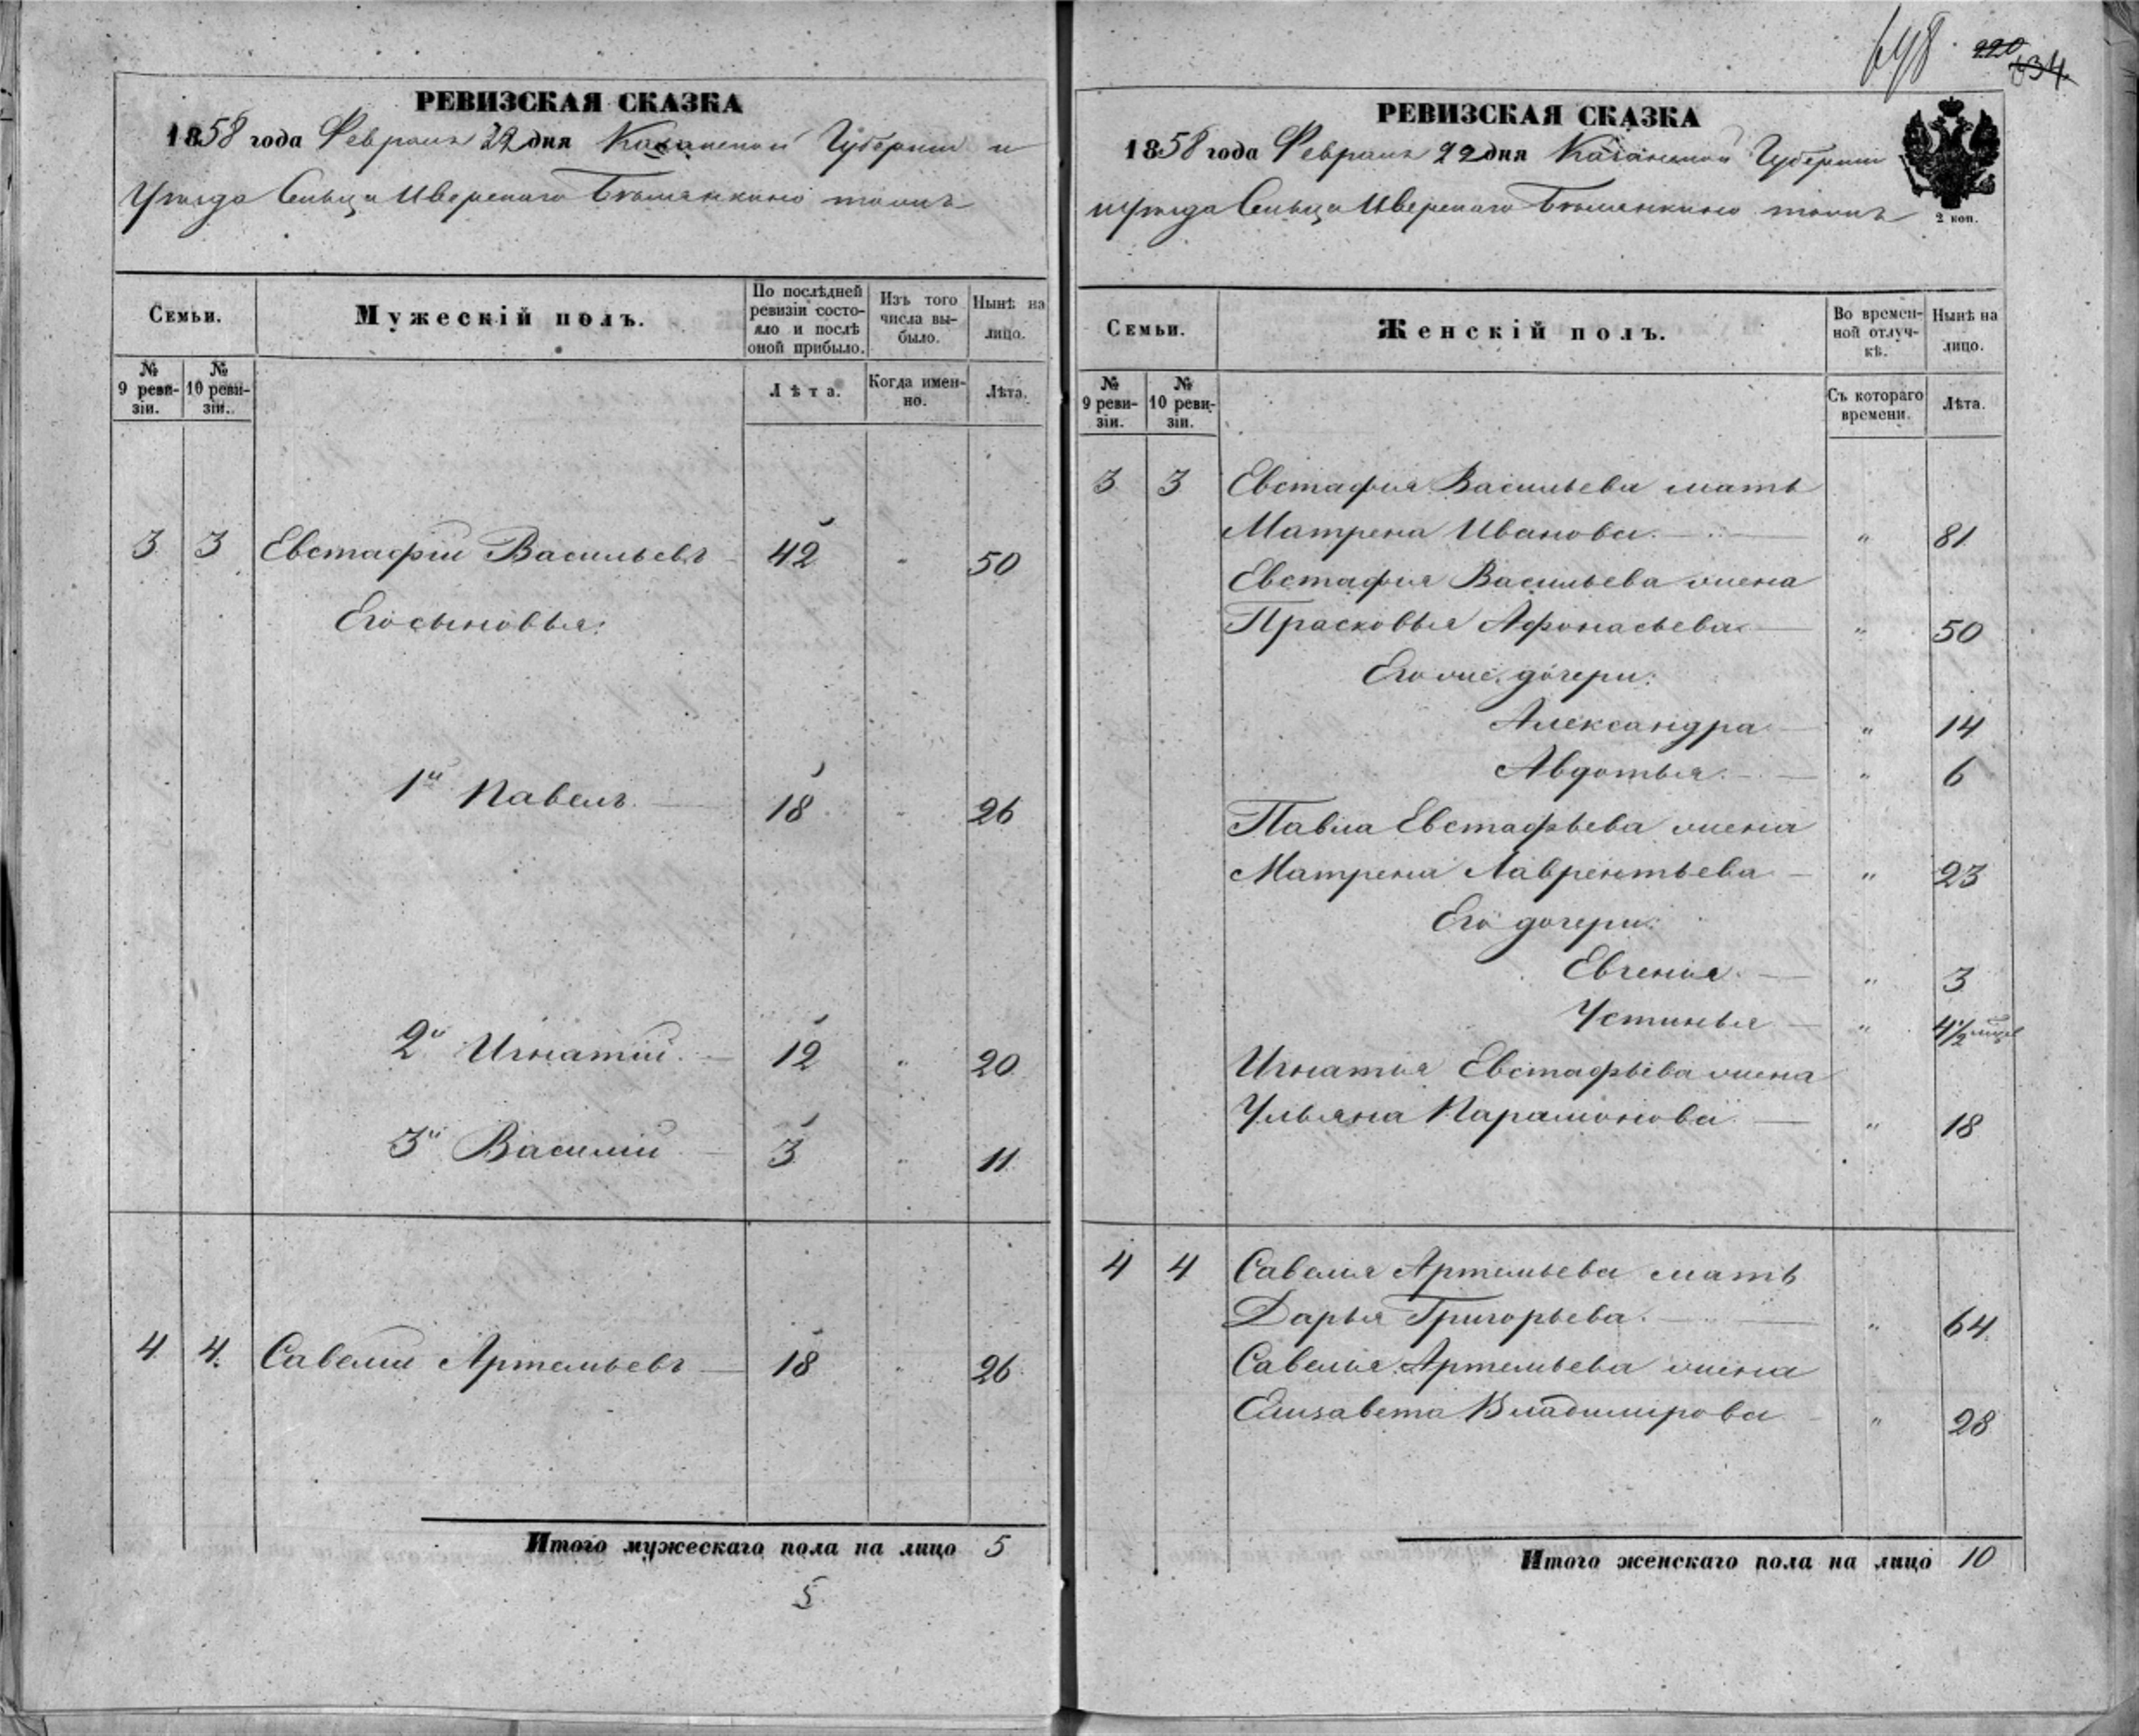 РЕВИЗСКАЯ СКАЗКА
1858 года Февраля 22 дня Казанской Губернии и
Уезда Сельца Иверскаго тожъ
Семьи.
Мужескій полъ.
По послѣдней ревизіи состояло и послѣ оной прибыло.
Изъ того числа выбыло.
Нынѣ на лицо.
№ 9 ревизіи.
№ 10 ревизіи.
Лѣта.
Когда именно.
Лѣта.
3 3 Евстафій Васильевъ 42 " 50
Его сыновья:
1й Павелъ 18 " 26
2й Игнатій 12 " 20
3й Василій 3 " 11
4 4 Савелій Артемьевъ 18 " 26
Итого мужескаго пола на лицо 5
5
698 220 434
РЕВИЗСКАЯ СКАЗКА
1858 года Февраля 22 дня Казанской Губерніи
и уезда Сельца Иверскаго тожъ
2 коп.
Семьи.
Женскій полъ.
Во временной отлучкѣ.
Нынѣ на лицо.
№ 9 ревизіи.
№ 10 ревизіи.
Съ котораго времени.
Лѣта.
3 3 Евстафія Васильева мать
Матрена Иванова " 81
Евстафія Васильева жена
Прасковья Афонасьева " 50
Его же дочери:
Александра " 14
Авдотья " 6
Павла Евстафьева жена
Матрена Лаврентьева " 23
Его дочери:
Евгенія " 3
Устинья " 4 1/2 мѣсяц
Игнатія Евстафьева жена
Ульяна Парамонова " 18
4 4 Савелія Артемьева мать
Дарья Григорьева " 64
Савелія Артемьева жена
Елизавета Владимирова " 28
Итого женскаго пола на лицо 10